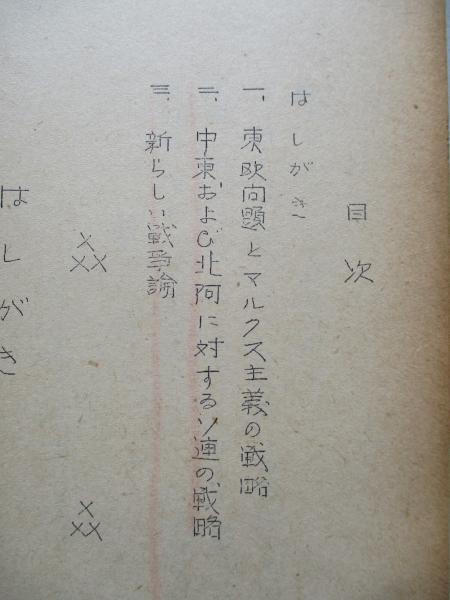 目次
はしがき
一、東欧問題とマルクス主義の戦略
二、中東および北阿に対するソ連の戦略
三、新らしい戦争論
×
××
×
××
はしがき